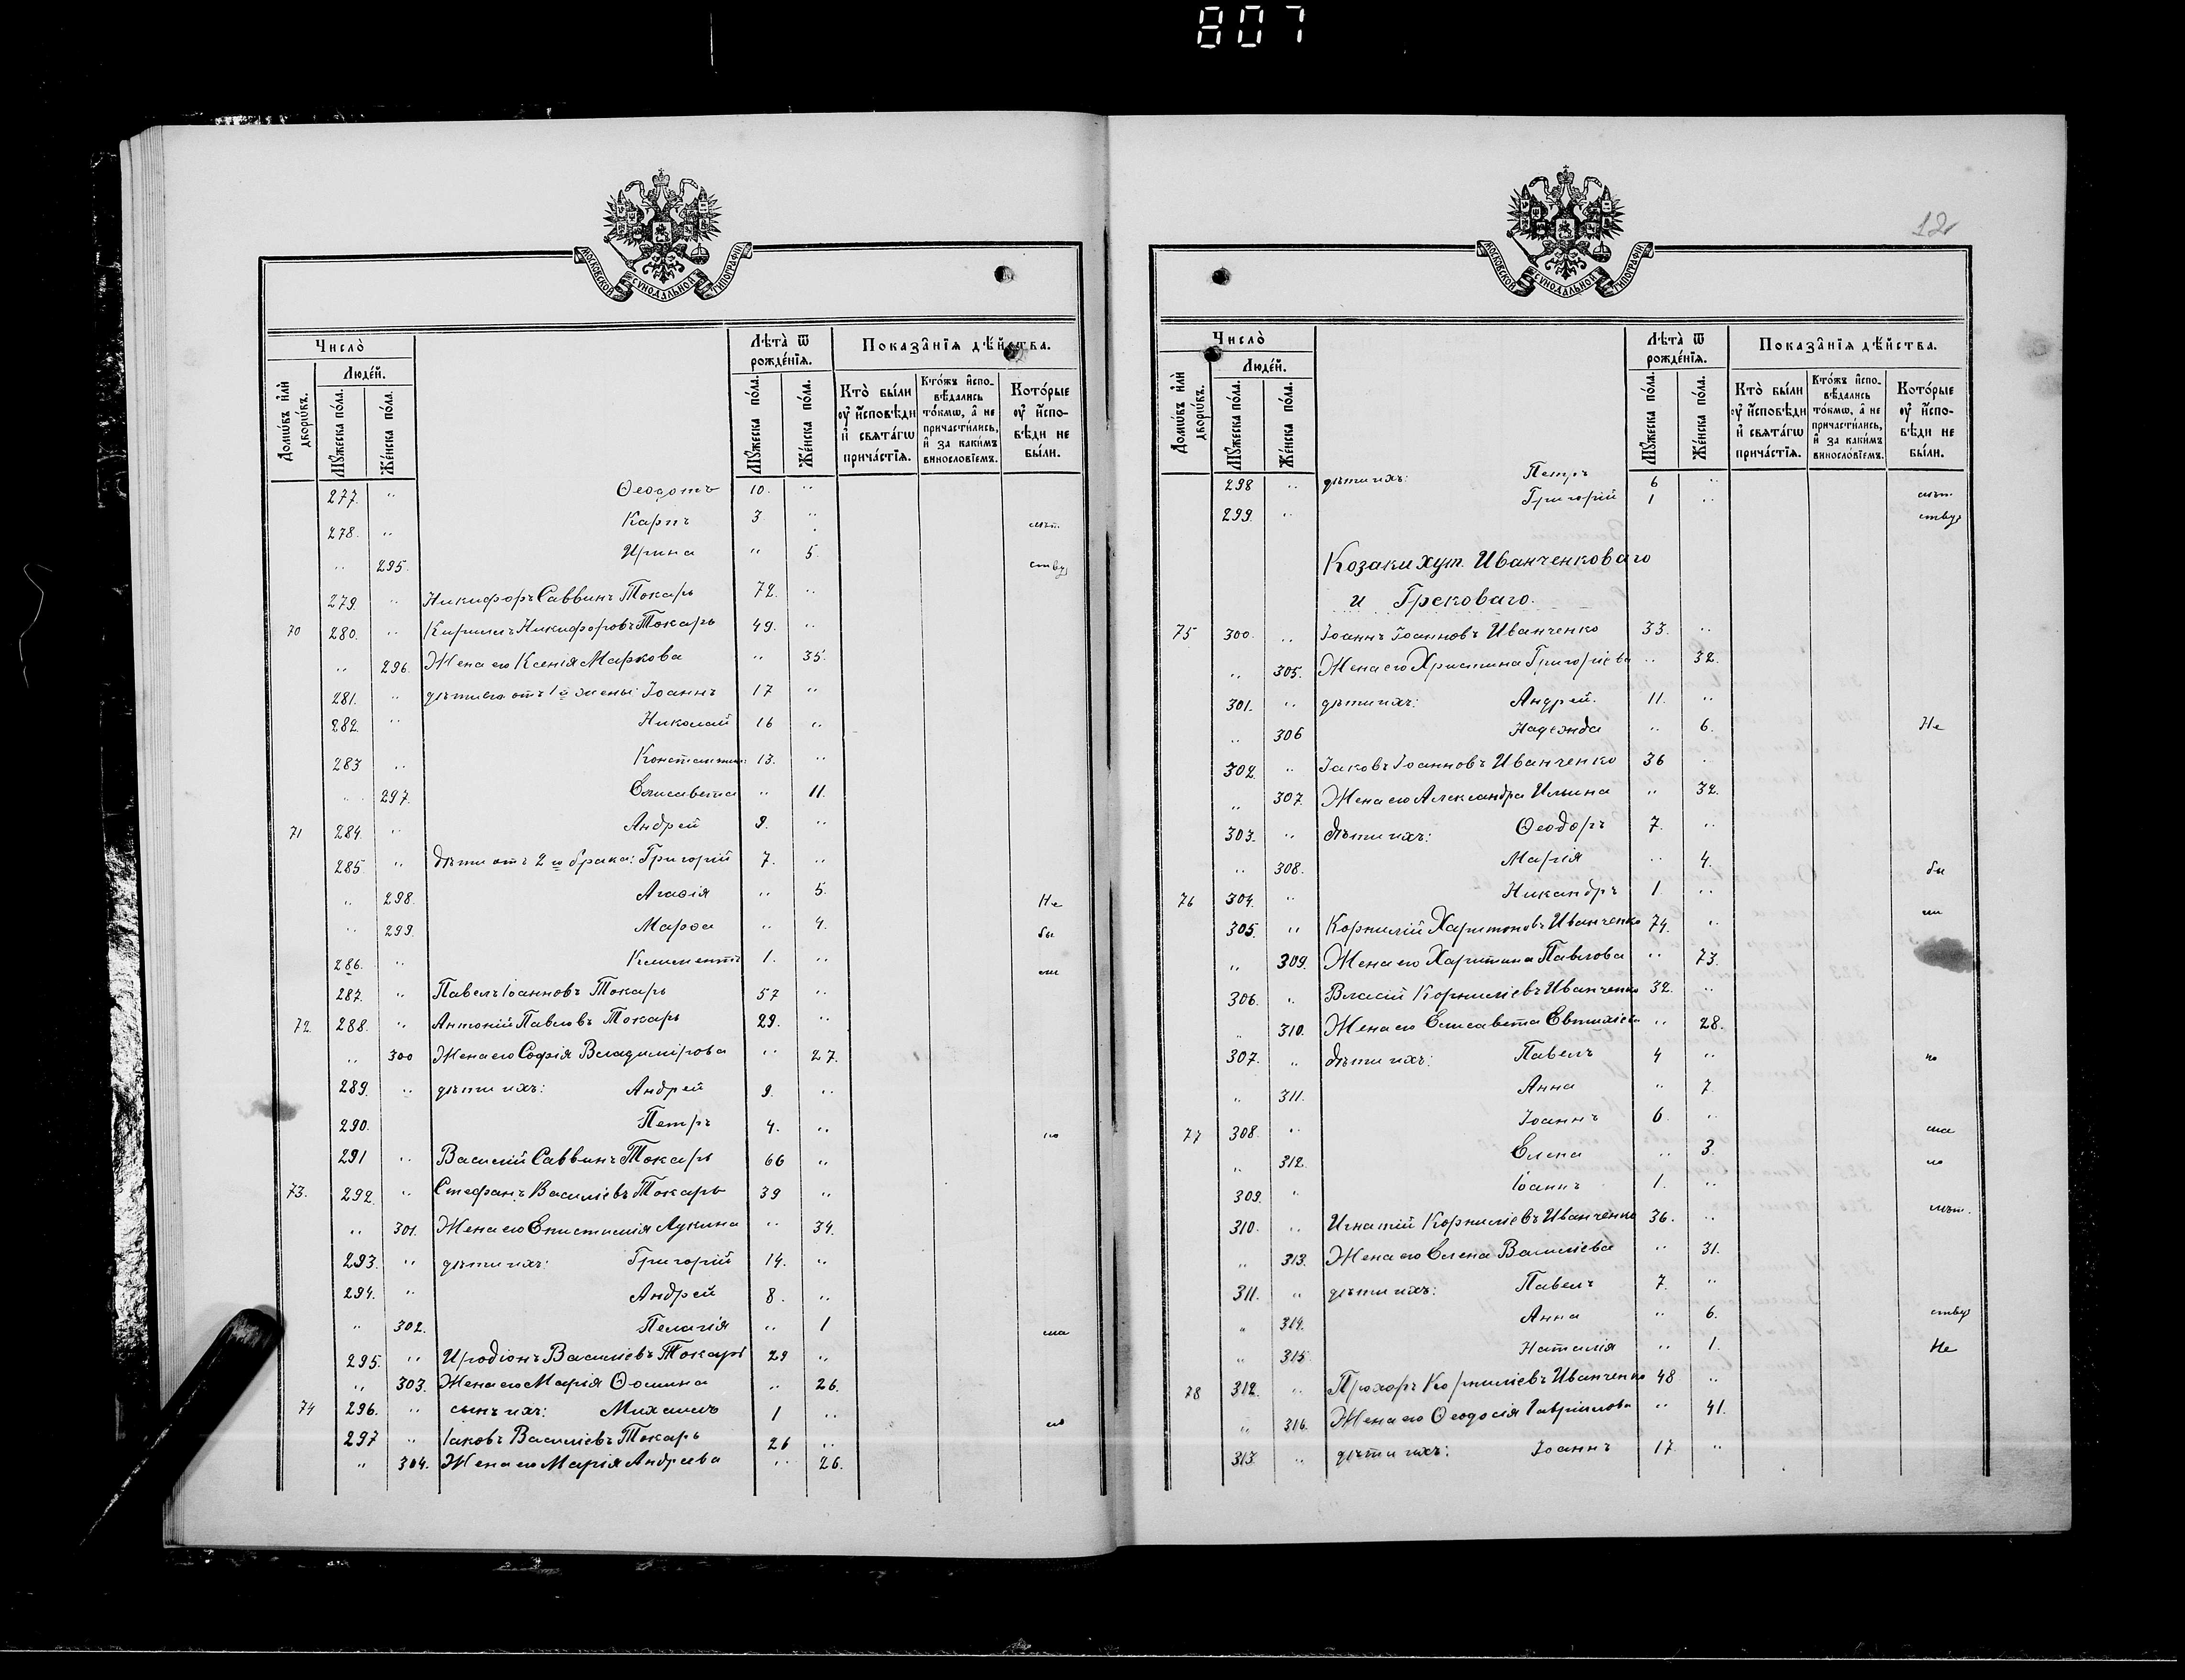 807
МОСКОВСКОЙ СѴНОДАЛЬНОЙ ТИПОГРАФІИ
Число̀
Лѣта̀ ѿ рожде́нїѧ.
Показа̑нїѧ дѣ́йства.
Домѡ́въ и҆лѝ дворѡ́въ.
Люде́й.
Мꙋ́жеска по́ла.
Же́нска по́ла.
Мꙋ́жеска по́ла.
Же́нска по́ла.
Кто̀ бы́ли ᲂу҆ и҆́сповѣди и҆ свѧта́гѡ прича́стїѧ.
Кто́жъ и҆спо-вѣ́дались то́кмѡ, а҆ не причасти́лись, и҆ за каки́мъ винословїемъ.
Кото́рые ᲂу҆ и҆́спо-вѣди не бы́ли.
277. " Ѳеодотъ 10. "
278. " Карпъ 3 " лѣт.
" 295. Ирина " 5. ству
279. " Никифоръ Саввинъ Токарь 72. "
70 280. " Кириллъ Никифоровъ Токарь 49. "
" 296. Жена его Ксенія Маркова " 35.
281. " дѣти его отъ 1й жены: Іоаннъ 17 "
282. " Николай 16 "
283 " Константинъ 13. "
" 297. Елисавета " 11.
71 284. " Андрей 9. "
285. " Дѣти отъ 2го брака: Григорій 7. "
" 298. Агаѳія " 5. Не
" 299. Марѳа " 4. бы
286. " Климентъ 1. " ли
287. " Павелъ Іоанновъ Токарь 57 "
72. 288. " Антоній Павловъ Токарь 29. "
" 300 Жена его Софія Владимірова " 27.
289. " дѣти ихъ: Андрей 9. "
290. Петръ 4. " по
291 " Василій Саввинъ Токарь 66 "
73. 292. " Стефанъ Васильевъ Токарь 39 "
" 301. Жена его Епистимія Лукина " 34.
293. " дѣти ихъ: Григорій 14. "
294. " Андрей 8. "
" 302. Пелагія " 1 ма
295. " Иродіонъ Васильевъ Токарь 29 "
" 303. Жена его Марія Ѳомина " 26.
74 296. " сынъ ихъ: Михаилъ 1 " ло
297 " Іаковъ Васильевъ Токарь 26 "
" 304. Жена его Марія Андреева " 26.
12
МОСКОВСКОЙ СѴНОДАЛЬНОЙ ТИПОГРАФІИ
Число̀
Лѣта̀ ѿ рожде́нїѧ.
Показа̑нїѧ дѣ́йства.
Домѡ́въ и҆лѝ дворѡ́въ.
Люде́й.
Мꙋ́жеска по́ла.
Же́нска по́ла.
Мꙋ́жеска по́ла.
Же́нска по́ла.
Кто̀ бы́ли ᲂу҆ и҆́сповѣди и҆ свѧта́гѡ прича́стїѧ.
Кто́жъ и҆спо-вѣ́дались то́кмѡ, а҆ не причасти́лись, и҆ за каки́мъ винословїемъ.
Кото́рые ᲂу҆ и҆́спо-вѣди не бы́ли.
298 " дѣти ихъ: Петръ 6 " лѣт.
299. " Григорій 1 " ству
Козаки хут. Иванченковаго
и Грековаго.
75 300. " Іоаннъ Іоанновъ Иванченко 33. "
" 305. Жена его Христина Григоріева " 32.
301. " дѣти ихъ: Андрей. 11. "
" 306 Надежда " 6. Не
302. " Іаковъ Іоанновъ Иванченко 36 "
" 307. Жена его Александра Ильина " 32.
303. " Дѣти ихъ: Ѳеодоръ 7. "
" 308. Марія " 4. бы
76 304. " Никандръ 1. "
305. " Корнилій Харитоновъ Иванченко 74. " ли
" 309. Жена его Харитина Павлова " 73.
306. " Власій Корниліевъ Иванченко 32. "
" 310. Жена его Елисавета Евтихіева " 28.
307. " Дѣти ихъ: Павелъ 4 " по
" 311. Анна " 7
77 308. " Іоаннъ 6. " ма
" 312. Елена " 3. ло
309. " Іоаннъ 1. "
310. " Игнатій Корниліевъ Иванченко 36. " лѣт.
" 313. Жена его Елена Васильева " 31.
311. " дѣти ихъ: Павелъ 7. "
" 314. Анна " 6. ству
" 315 Наталія " 1. Не
78 312. " Прохоръ Корниліевъ Иванченко 48 "
" 316. Жена его Ѳеодосія Гавріилова " 41.
313 " дѣти ихъ: Іоаннъ 17 "